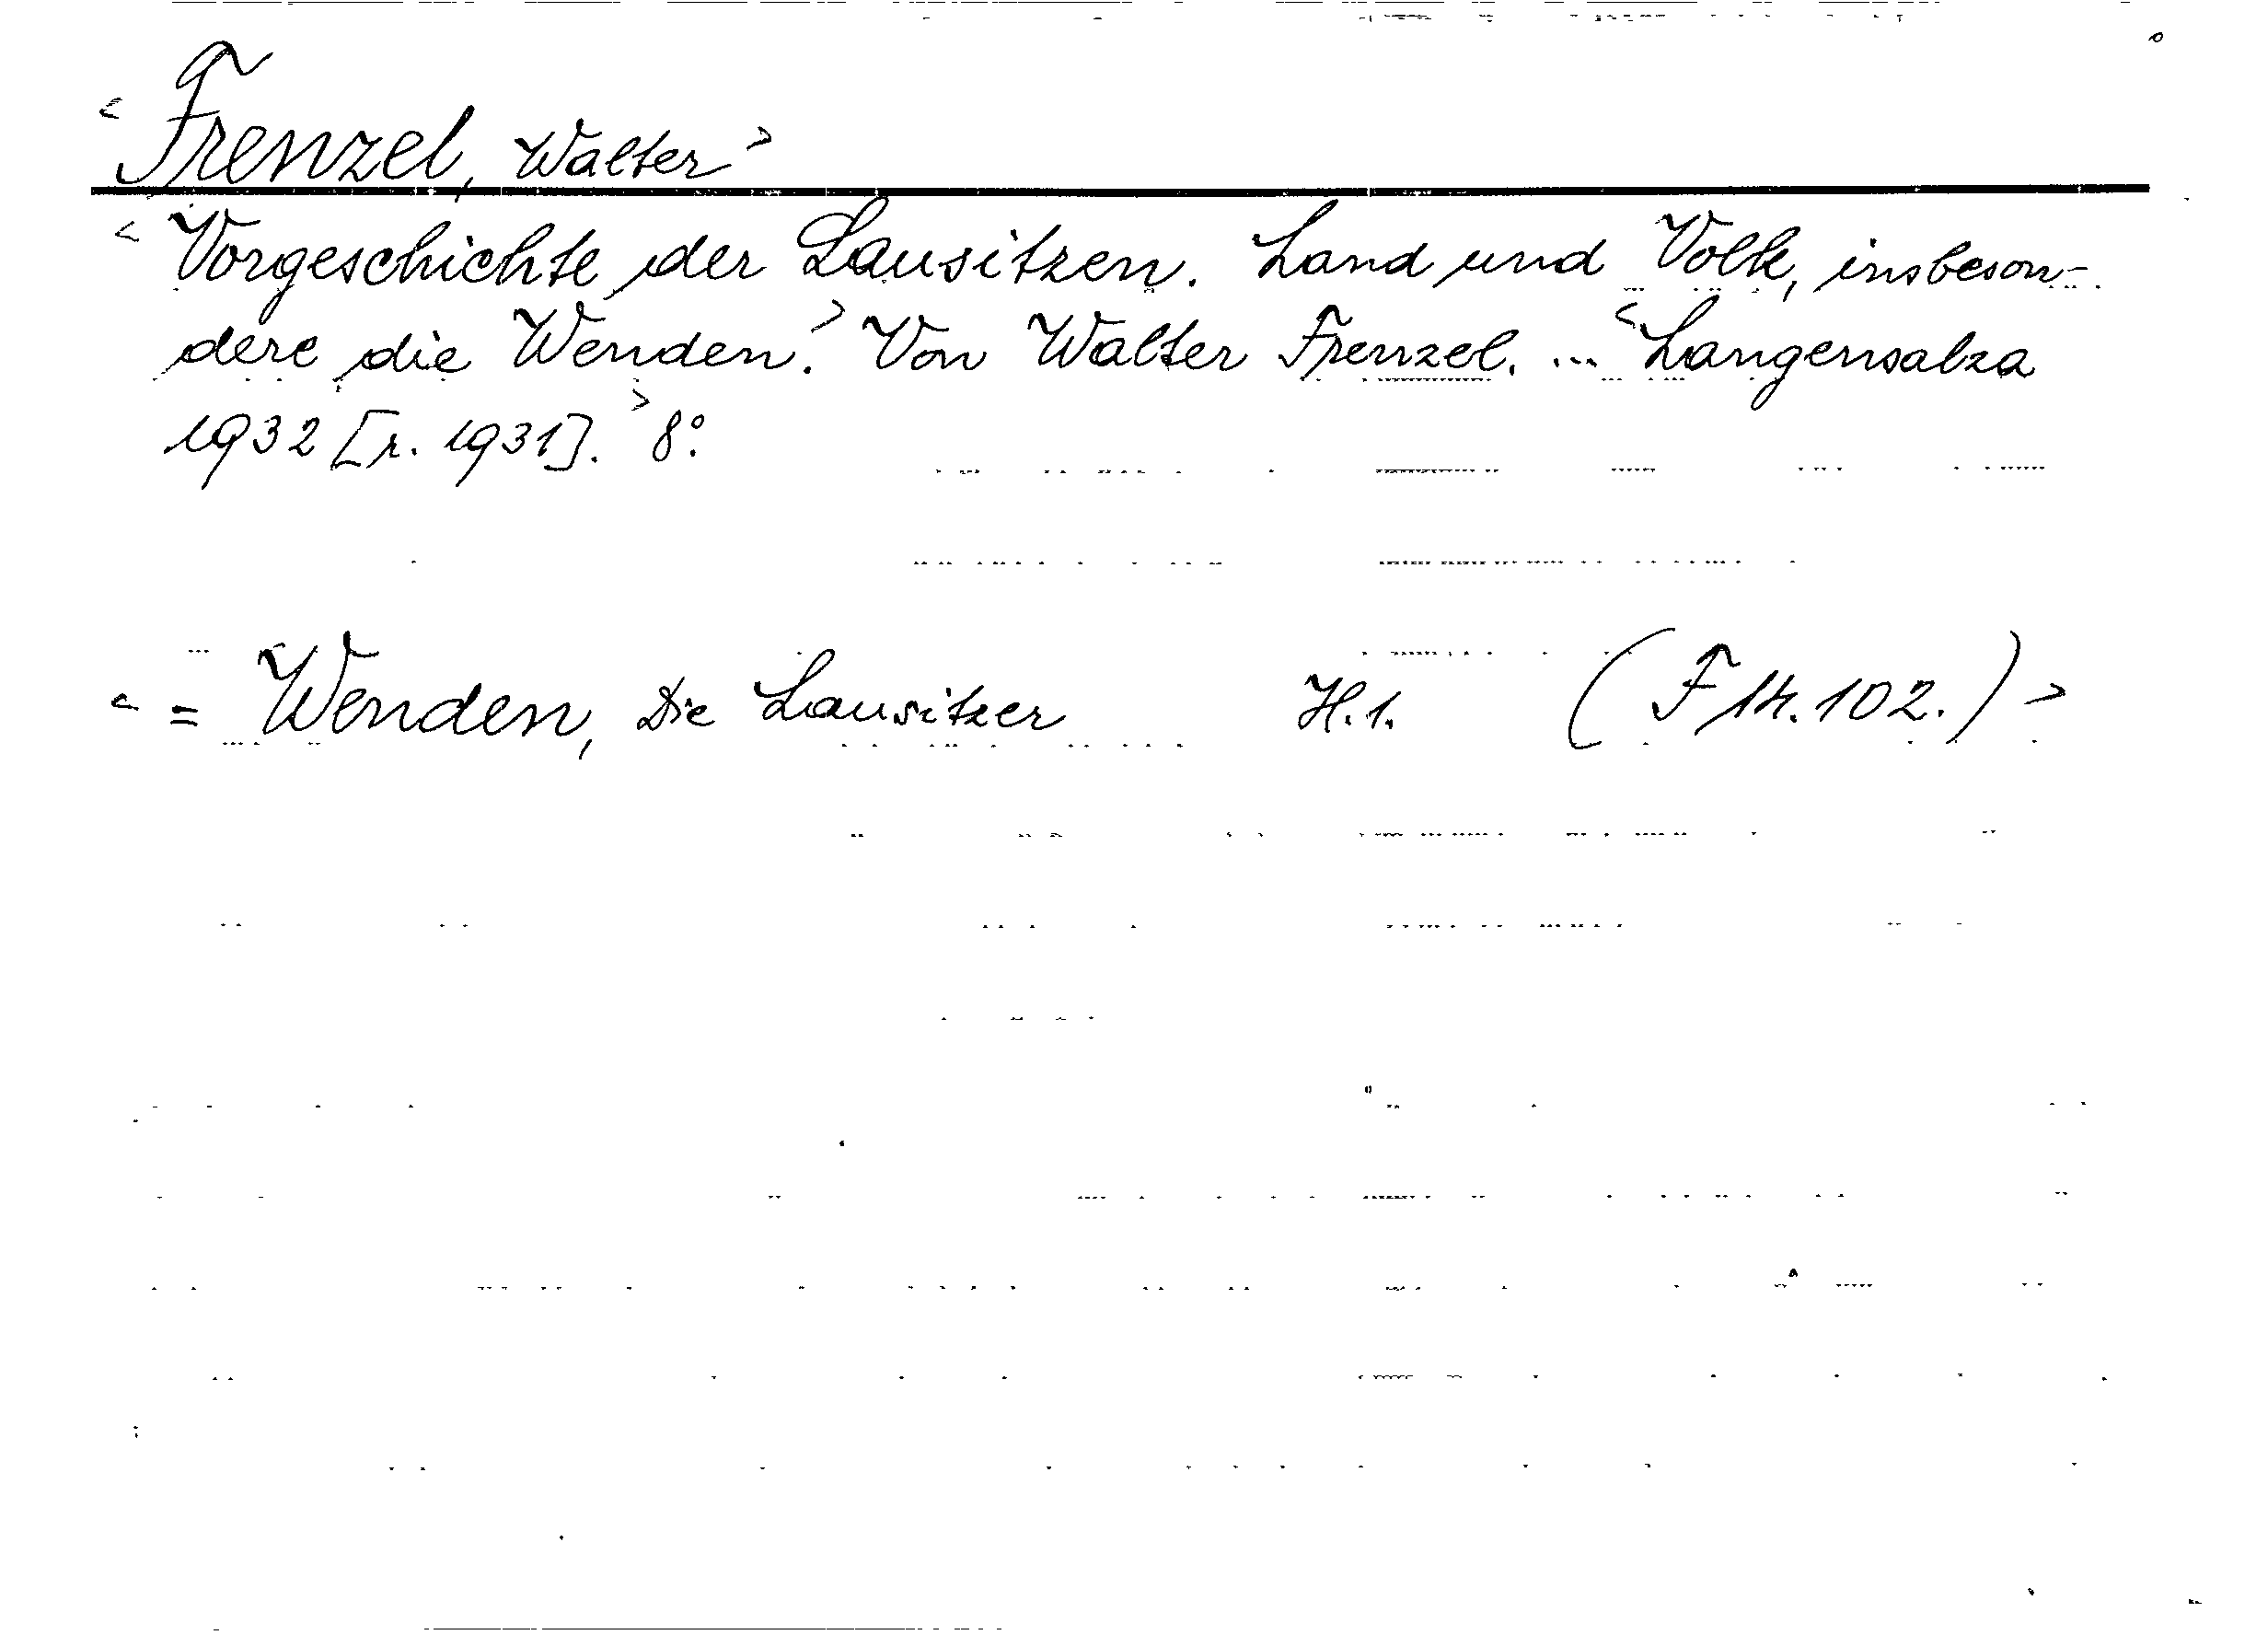 < Frenzel, Walter >
< Vorgeschichte der Lausitzen. Land und Volk, insbeson-
dere die Wenden. > Von Walter Frenzel. ... < Langensalza
1932 [r. 1931]. > 8°.
< = Wenden, Die Lausitzer H.1. (F 14. 102.) >